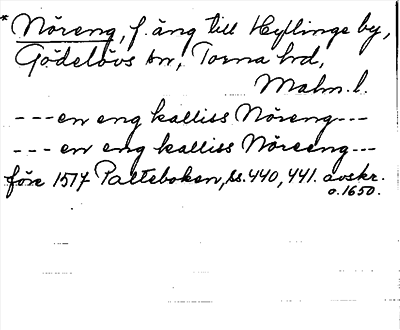 * Nöreng, f. äng till Hyllinge by,
Gödelövs sn, Torna hd,
Malm. l.
---en eng kalliss Nöreng---
---en eng kalliss Nöreeng---
före 1517 Palteboken, ss. 440, 441. avskr.
o. 1650.